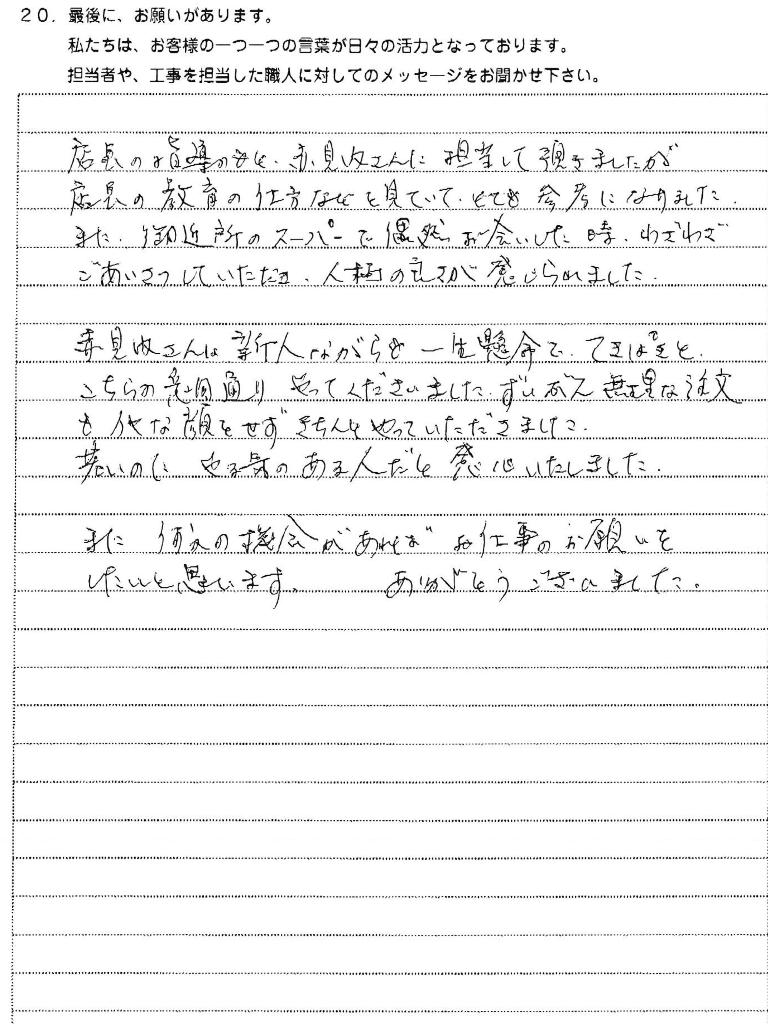 20. 最後に、お願いがあります。
私たちは、お客様の一つ一つの言葉が日々の活力となっております。
担当者や、工事を担当した職人に対してのメッセージをお聞かせ下さい。
店長の指導のもと、赤見内さんに担当して頂きましたが
店長の教育の仕方などを見ていて、とても参考になりました。
また、御近所のスーパーで偶然お会いした時、わざわざ
ごあいさつしていただき、人柄の良さが感じられました。
赤見内さんは新人ながらも一生懸命で、てきぱきと、
こちらの意図通りやってくださいました。ずいぶん無理な注文
もイヤな顔をせずきちんとやっていただきました。
若いのにやる気のある人だと感心いたしました。
また何かの機会があればお仕事のお願いを
したいと思います。 ありがとうございました。